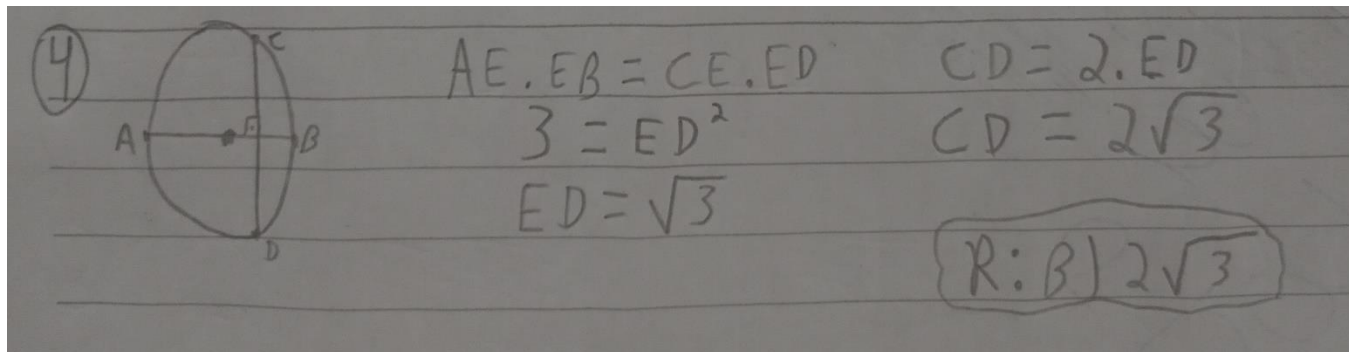 4
C
A
B
D
AE.EB = CE.ED
3 = ED²
ED = √3
CD = 2.ED
CD = 2√3
R: B) 2√3